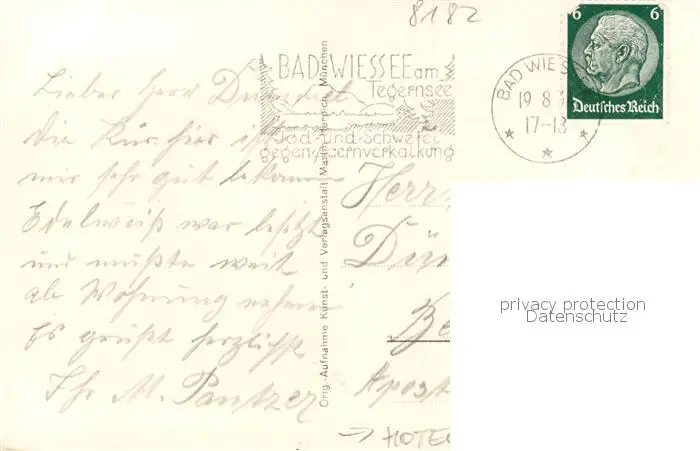 8182
BAD WIESSEE am
Tegernsee
Jod- und Schwefel
gegen Adernverkalkung
BAD WIESS
19 8 3
17-18
6 6
Deutsches Reich
Lieber Herr
Die Kur hier ist
mir sehr gut bekommen
Edelweiß war besetzt
und mußte weit
ab Wohnung nehmen
Es grüßt herzlichst
Ihr M. Pantzer
Orig.-Aufnahme Kunst- und Verlagsanstalt Martin Herpich, München
Herrn
Be
Apost
→ HOTEL
privacy protection
Datenschutz